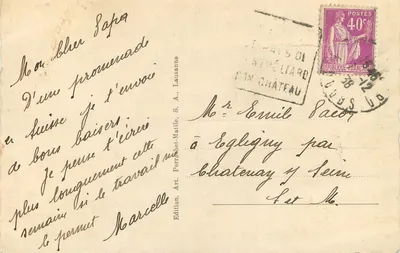 Mon cher Papa
D'une promenade
en Suisse je t'envoie
de bons baisers.
Je pense t'écrire
plus longuement cette
semaine si le travail me
le permet
Marcelle
Edition. Art. Perrochet-Matile, S. A., Lausanne
MONTBÉLIARD
SON CHATEAU
POSTES
40c
DOUBS
Mr Emile
à Egligny par
Chatenay s/ Seine
S et M.